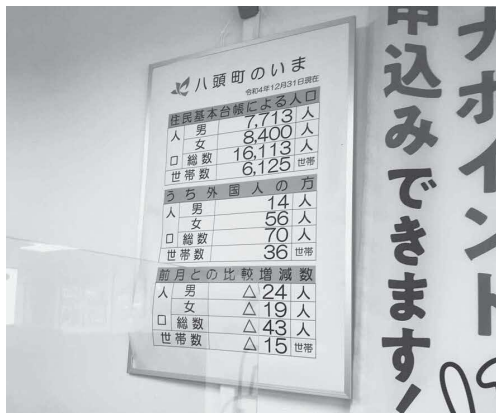 八頭町のいま
令和4年12月31日現在
住民基本台帳による人口
人口 男 7,713 人
女 8,400 人
総数 16,113 人
世帯数 6,125 世帯
うち外国人の方
人口 男 14 人
女 56 人
総数 70 人
世帯数 36 世帯
前月との比較増減数
人口 男 △ 24 人
女 △ 19 人
総数 △ 43 人
世帯数 △ 15 世帯
ナポイント
申込みできます!